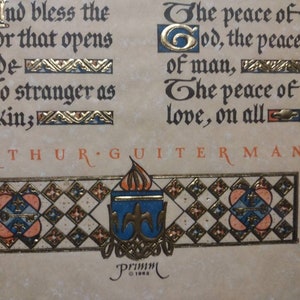 nd bless the
or that opens
de
o stranger as
kin;
The peace of
God, the peace
of man,
The peace of
love, on all
THUR · GUITERMAN
primm
© 1993